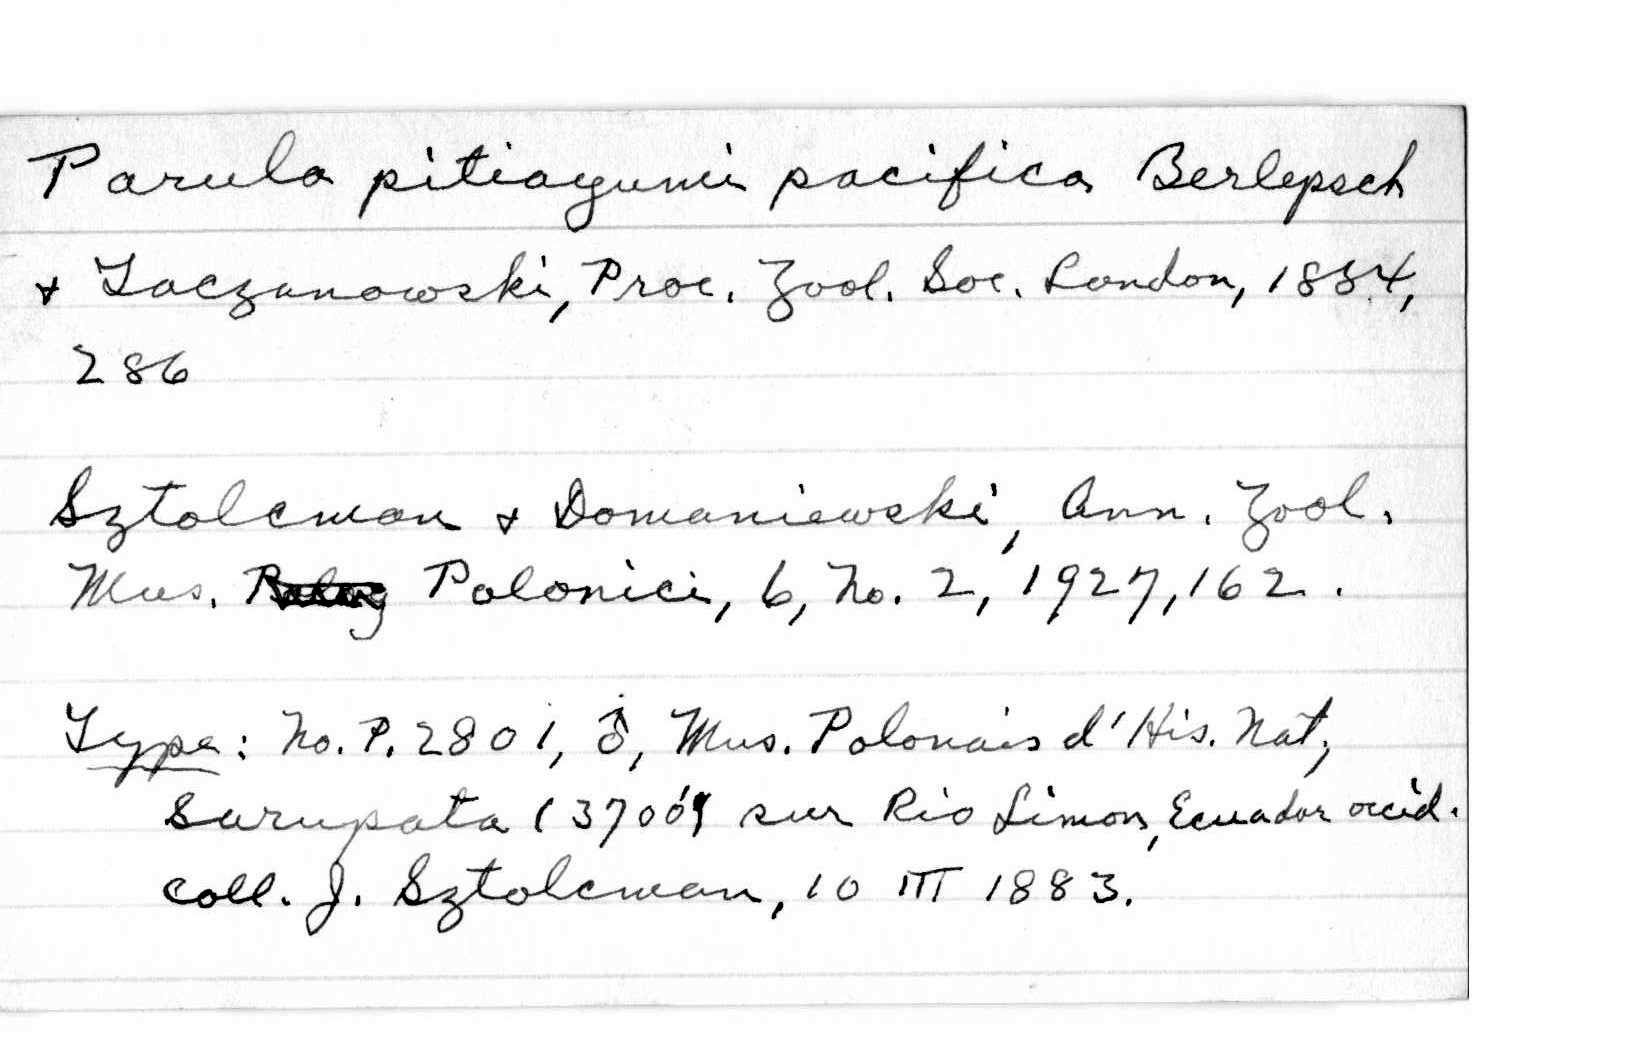 Parula pitiayumi pacifica Berlepsch
& Taczanowski, Proc. Zool. Soc. London, 1884,
286
Sztolcman & Domaniewski, Ann. Zool.
Mus. Polonici, 6, No. 2, 1927, 162.
Type: No. P. 2801, ♂, Mus. Polonais d'His. Nat,
Surupata (3700') sur Rio Limon, Ecuador occid.
coll. J. Sztolcman, 10 III 1883.